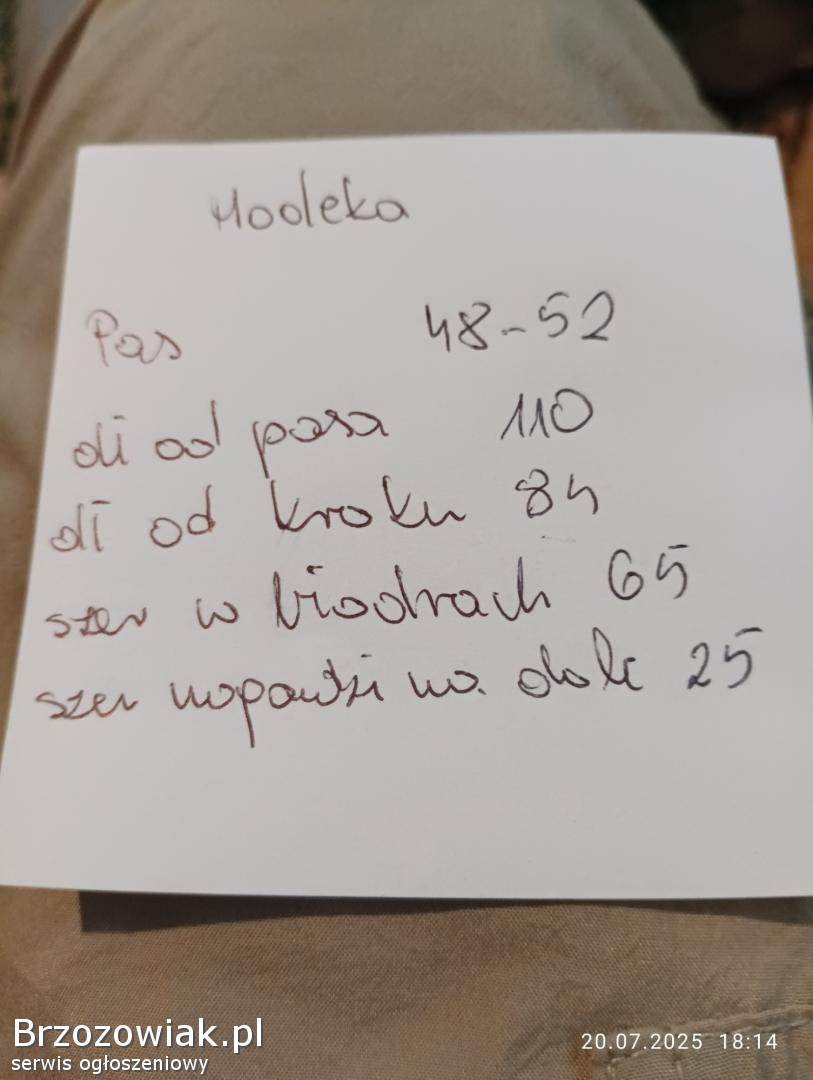 Modeka
Pas 48-52
dł od pasa 110
dł od kroku 84
szer w biodrach 65
szer nogawki na dole 25
Brzozowiak.pl
serwis ogłoszeniowy
20.07.2025 18:14